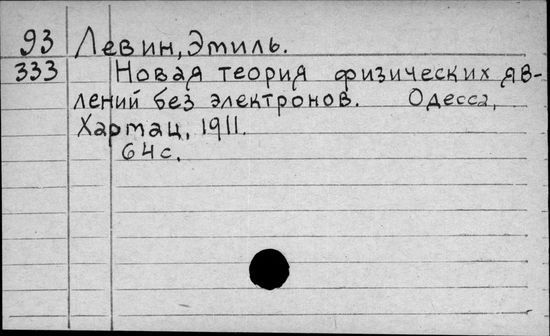 93 Левин, Эмиль.
333 Новая теория физических яв-
лений без электронов. Одесса,
Хартац, 1911.
64 с.